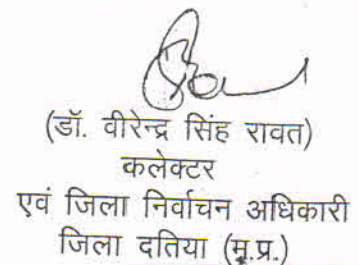 (डॉ. वीरेन्द्र सिंह रावत)
कलेक्टर
एवं जिला निर्वाचन अधिकारी
जिला दतिया (म.प्र.)